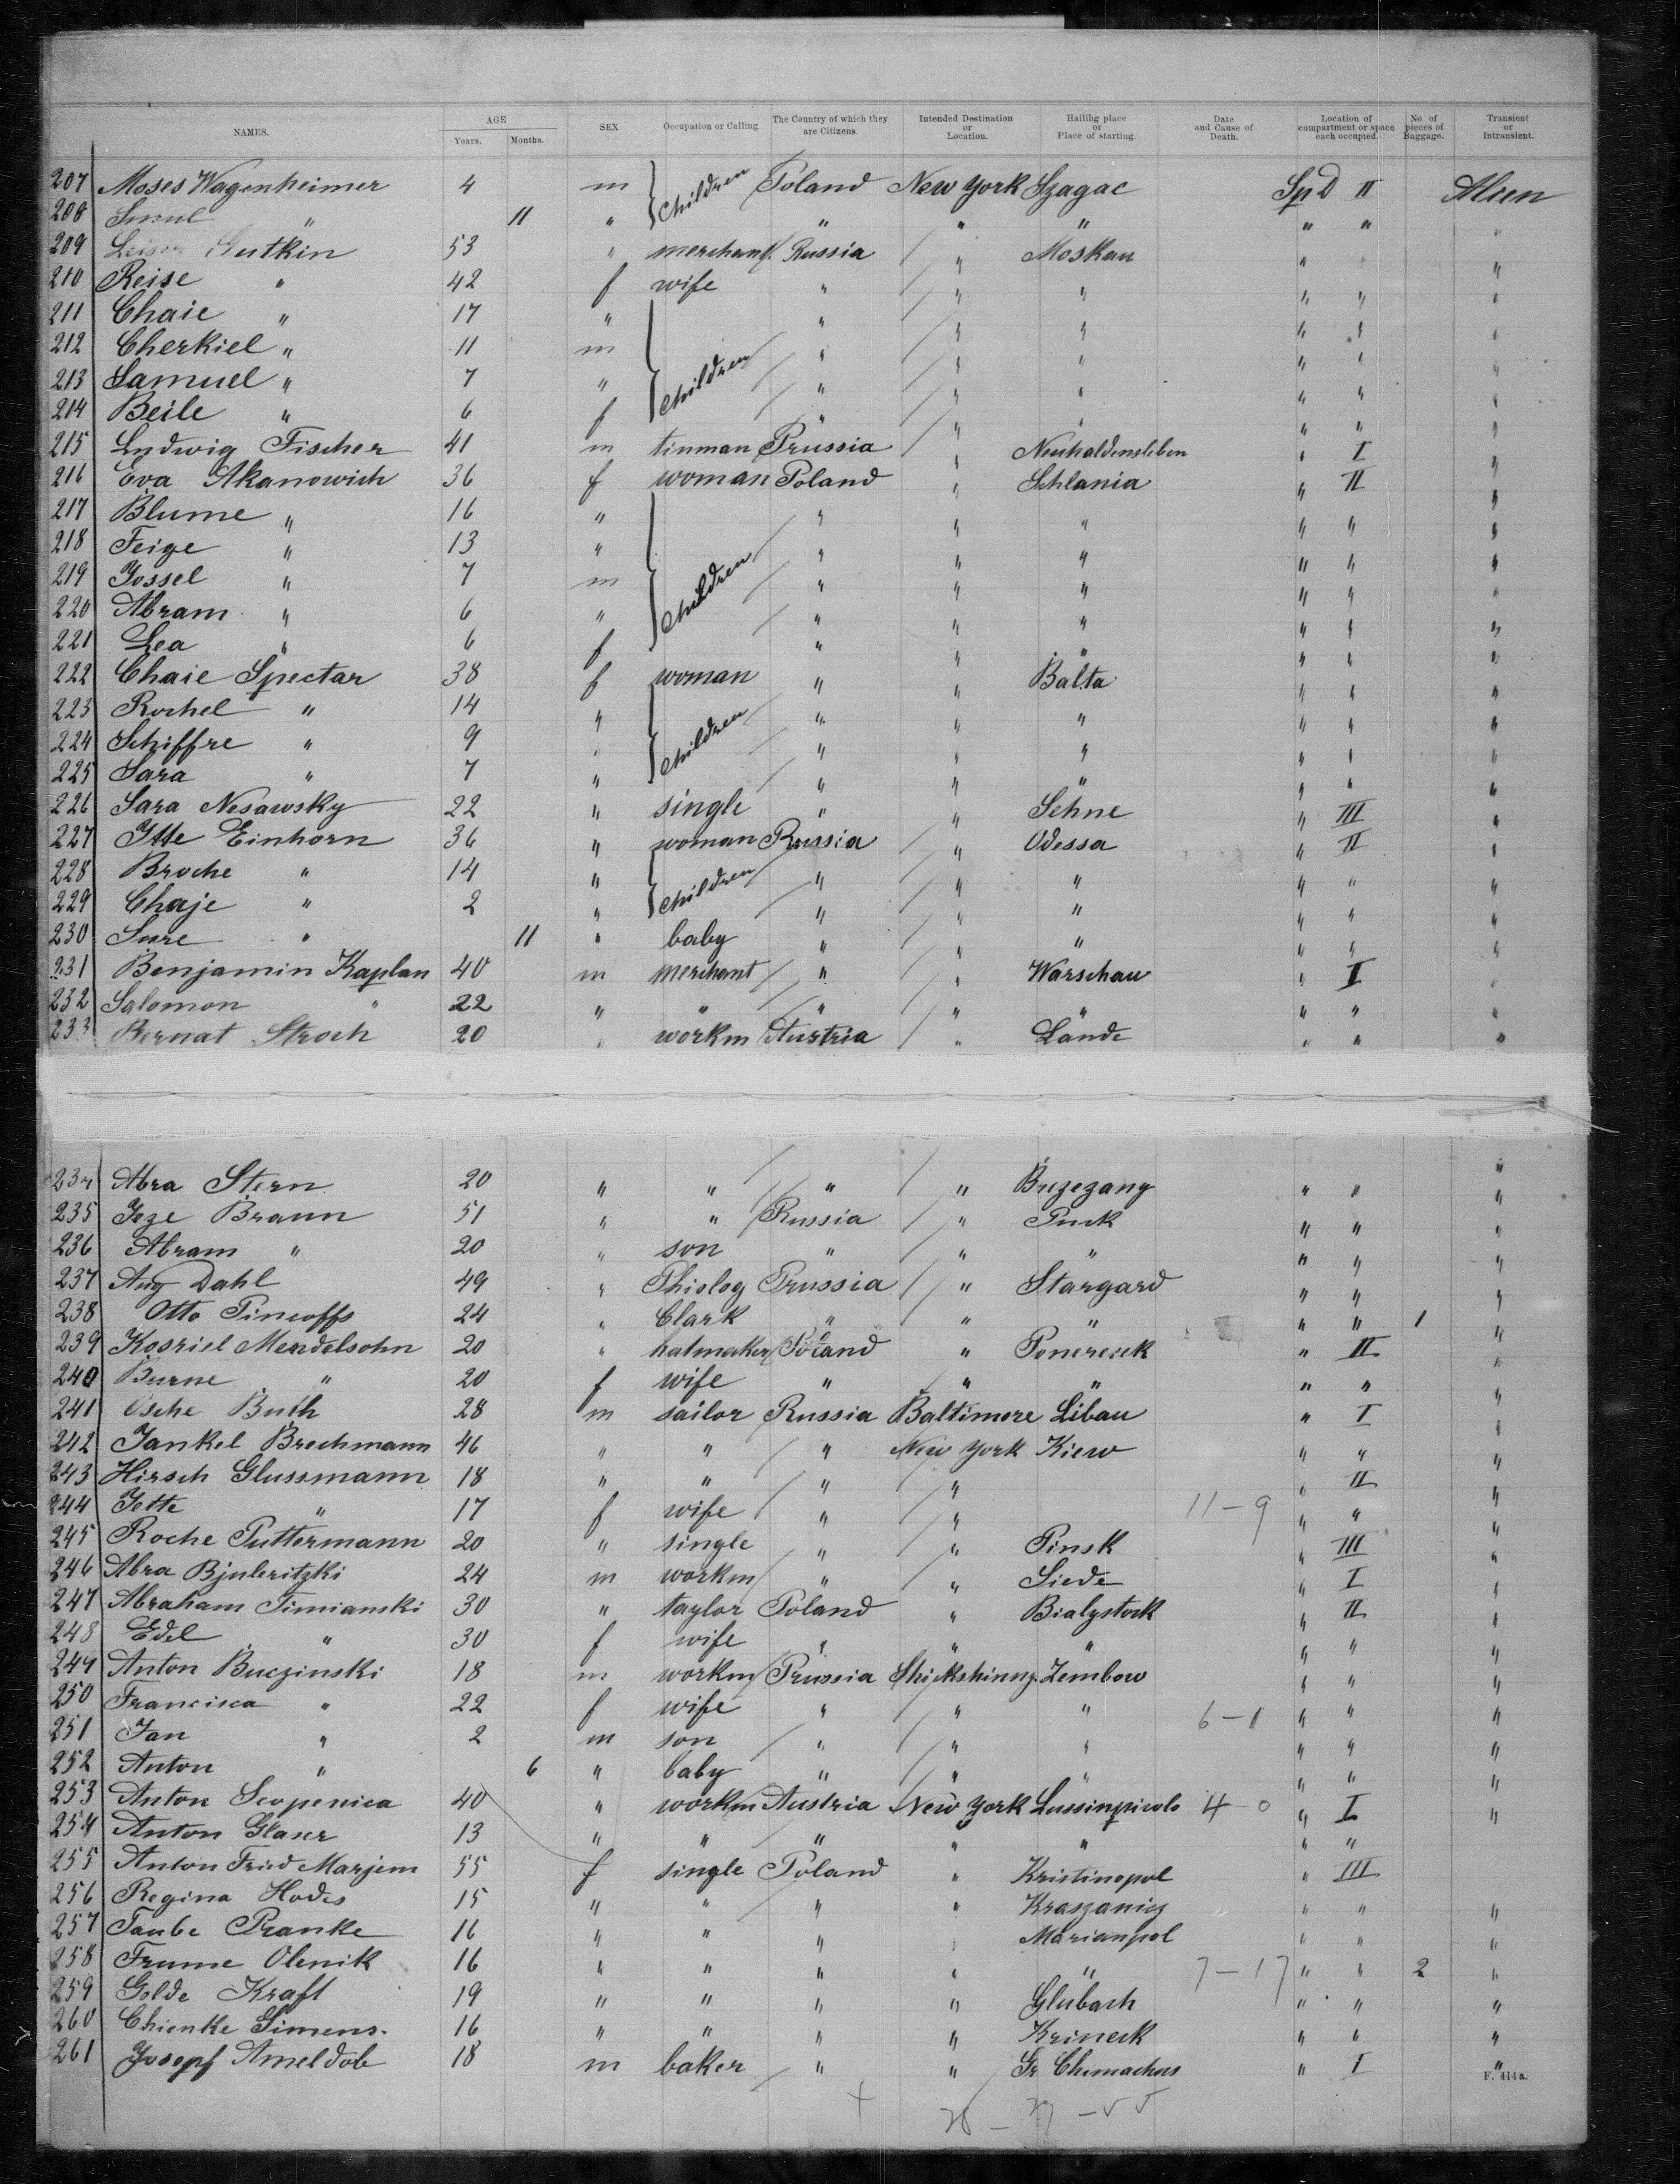 NAMES. AGE Years. Months. SEX Occupation or Calling. The Country of which they are Citizens. Intended Destination or Location. Hailing place or Place of starting. Date and Cause of Death. Location of compartment or space each occupied. No of pieces of Baggage. Transient or Intransient.
207 Moses Wagenheimer 4 m Children Poland New York Szagac Sp D II
208 Smul " 11 " " " " " "
209 Leiser Gutkin 53 " merchant Russia " Moskau " "
210 Reise " 42 f wife " " " " " "
211 Chaie " 17 " " " " " " "
212 Cherkiel " 11 m children " " " " " "
213 Samuel " 7 " " " " " " "
214 Beile " 6 f " " " " " "
215 Ludwig Fischer 41 m tinman Prussia " Neuhaldensleben " I "
216 Eva Akanowich 36 f woman Poland " Schlania " II "
217 Blume " 16 " " " " " " "
218 Feige " 13 " " " " " " "
219 Yossel " 7 m children " " " " " "
220 Abram " 6 " " " " " " "
221 Lea " 6 f " " " " " "
222 Chaie Spectar 38 f woman " " Balta " " "
223 Rochel " 14 " " " " " " "
224 Schiffre " 9 " children " " " " " "
225 Sara " 7 " " " " " " "
226 Sara Nesawsky 22 " single " " Sehne " III "
227 Itte Einhorn 36 " woman Russia " Odessa " II "
228 Broche " 14 " children " " " " " "
229 Chaje " 2 " " " " " " "
230 Sure " 11 " baby " " " " " "
231 Benjamin Kaplan 40 m merchant " " Warschau " I "
232 Salomon " 22 " " " " " " " "
233 Bernat Stroch 20 " workm Austria " Lande " " "
234 Abra Stern 20 " " " " Brzezany " " "
235 Jeze Braun 51 " " Russia " Pinsk " " "
236 Abram " 20 " son " " " " " "
237 Aug Dahl 49 " Phiolog Prussia " Stargard " " "
238 Otto Pincoffs 24 " Clark " " " " " 1 "
239 Kosriel Mendelsohn 20 " hatmaker Poland " Ponereek " II "
240 Burne " 20 f wife " " " " " "
241 Osche Buth 28 m sailor Russia Baltimore Libau " I "
242 Jankel Brechmann 46 " " " New York Kiew " " "
243 Hirsch Glussmann 18 " " " " " II "
244 Jette " 17 f wife " " 11-9 " " "
245 Roche Puttermann 20 " single " " Pinsk " III "
246 Abra Bjuleritzki 24 m workm " " Siede " I "
247 Abraham Timianski 30 " taylor Poland " Bialystock " II "
248 Edel " 30 f wife " " " " " "
249 Anton Buczinski 18 m workm Prussia Shickshinny Zembow " " "
250 Francisca " 22 f wife " " " 6-1 " " "
251 Jan " 2 m son " " " " " "
252 Anton " 6 " baby " " " " " "
253 Anton Scopenica 40 " workm Austria New York Lussinpicolo 4-0 " I "
254 Anton Glaser 13 " " " " " " "
255 Anton Fried Marjem 55 f single Poland " Kristinopol " III
256 Regina Hodes 15 " " " " Kraszanicz " " "
257 Taube Pranke 16 " " " " Marianpol " " "
258 Frume Olenik 16 " " " " " 7-17 " " 2 "
259 Golde Kraft 19 " " " " Glubach " " "
260 Chienke Simens. 16 " " " " Krineck " " "
261 Josepf Ameldob 18 m baker " " Gr " I "
F. 414a.